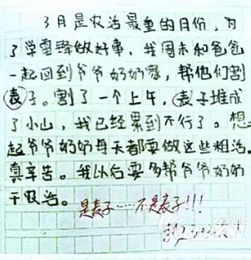 3月是农活最重的月份，为
了学雷锋做好事，我周末和爸爸
一起回到爷爷奶奶家，帮他们割
表子。割了一个上午，表子堆成
了小山，我已经累到不行了。想
起爷爷奶奶每天都要做这些粗活。
真辛苦。我以后要多帮爷爷奶奶
干农活。
是麦子……不是表子!!!